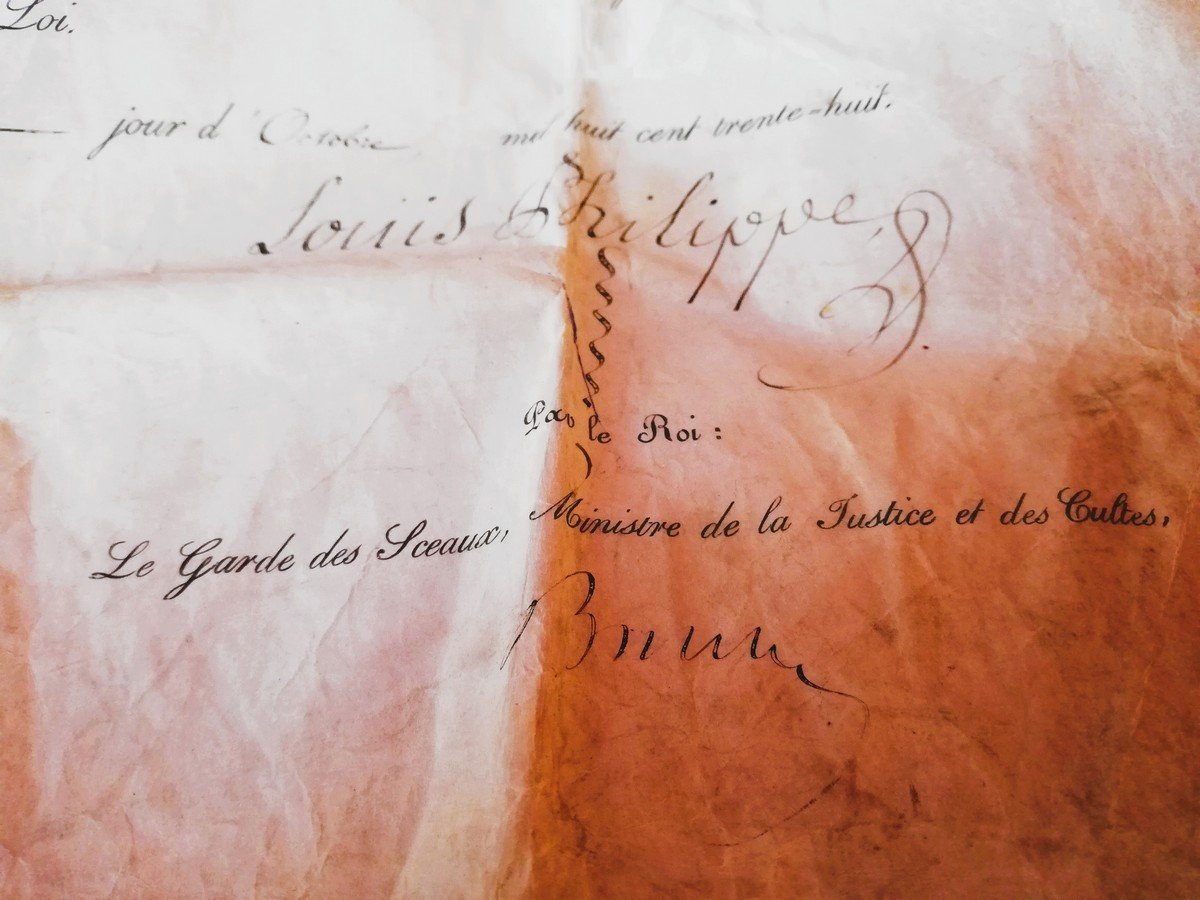 Loi.
jour d'Octobre mil huit cent trente-huit.
Louis Philippe
Par le Roi :
Le Garde des Sceaux, Ministre de la Justice et des Cultes,